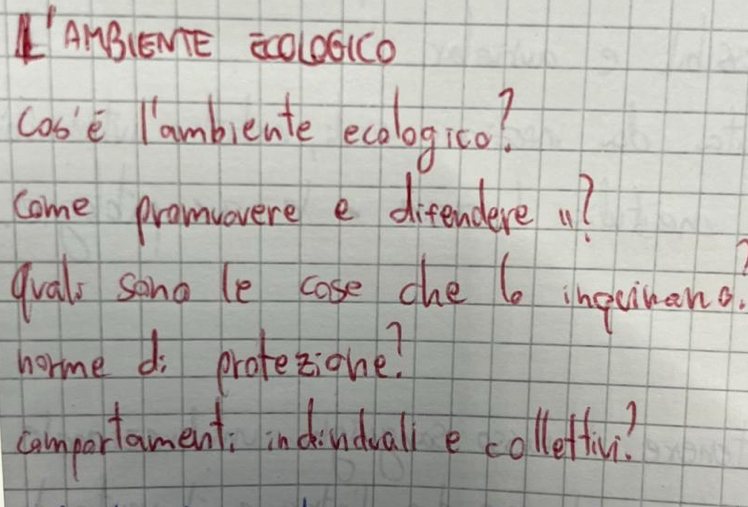 L'AMBIENTE ECOLOGICO
Cos'è l'ambiente ecologico?
Come promuovere e difendere "?
quali sono le cose che lo inquinano?
norme di protezione?
comportamenti individuali e collettivi?